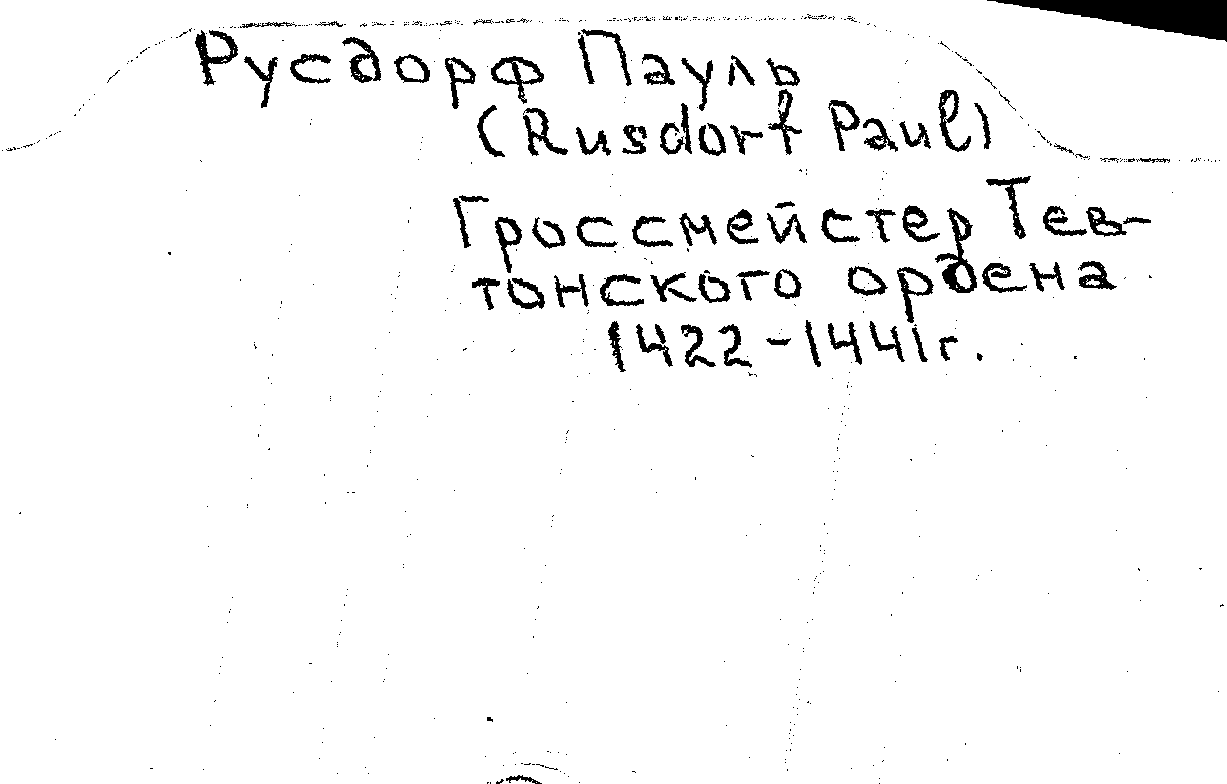 Русдорф Пауль
(Rusdorf Paul)
Гроссмейстер Тев-
тонского ордена
1422-1441г.